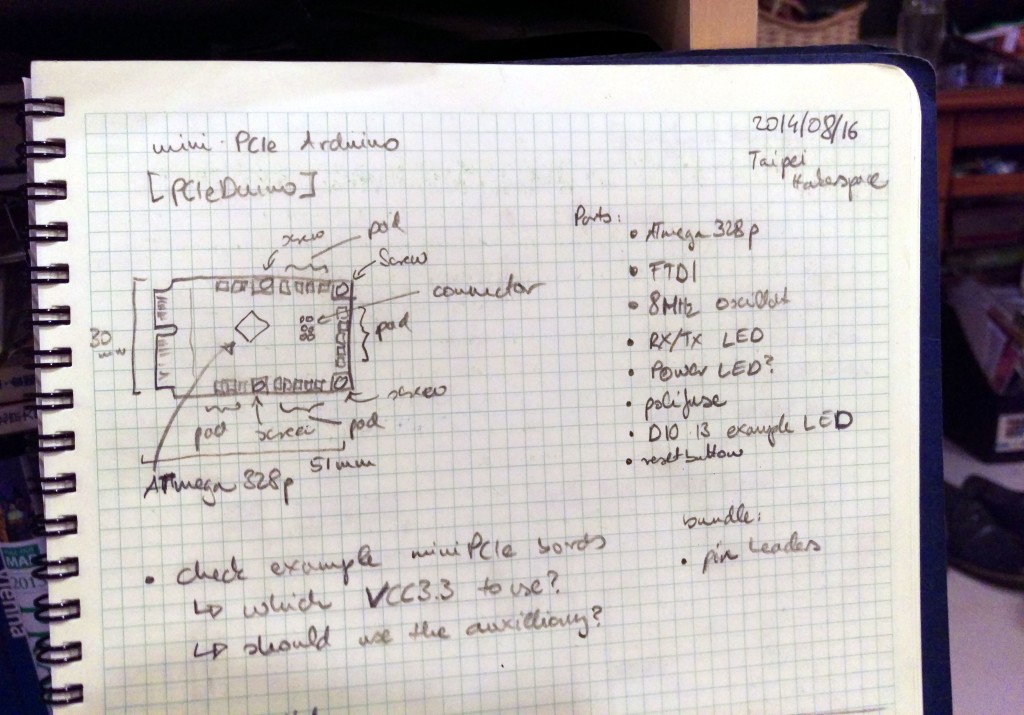 2014/08/16
mini PCIe Arduino
Taipei
Hakerspace
[PCIeDuino]
Parts:
• ATmega 328p
• FTDI
• 8MHz oscillat
• RX/TX LED
• Power LED?
• polifuse
• DIO 13 example LED
• reset button
screw
pad
Screw
connector
pad
30
mm
screw
pad
screw
pad
51mm
ATmega 328p
bundle:
• pin headers
• check example miniPCIe bords
↳ which VCC3.3 to use?
↳ should use the auxilliary?
MAD
201
Vienna